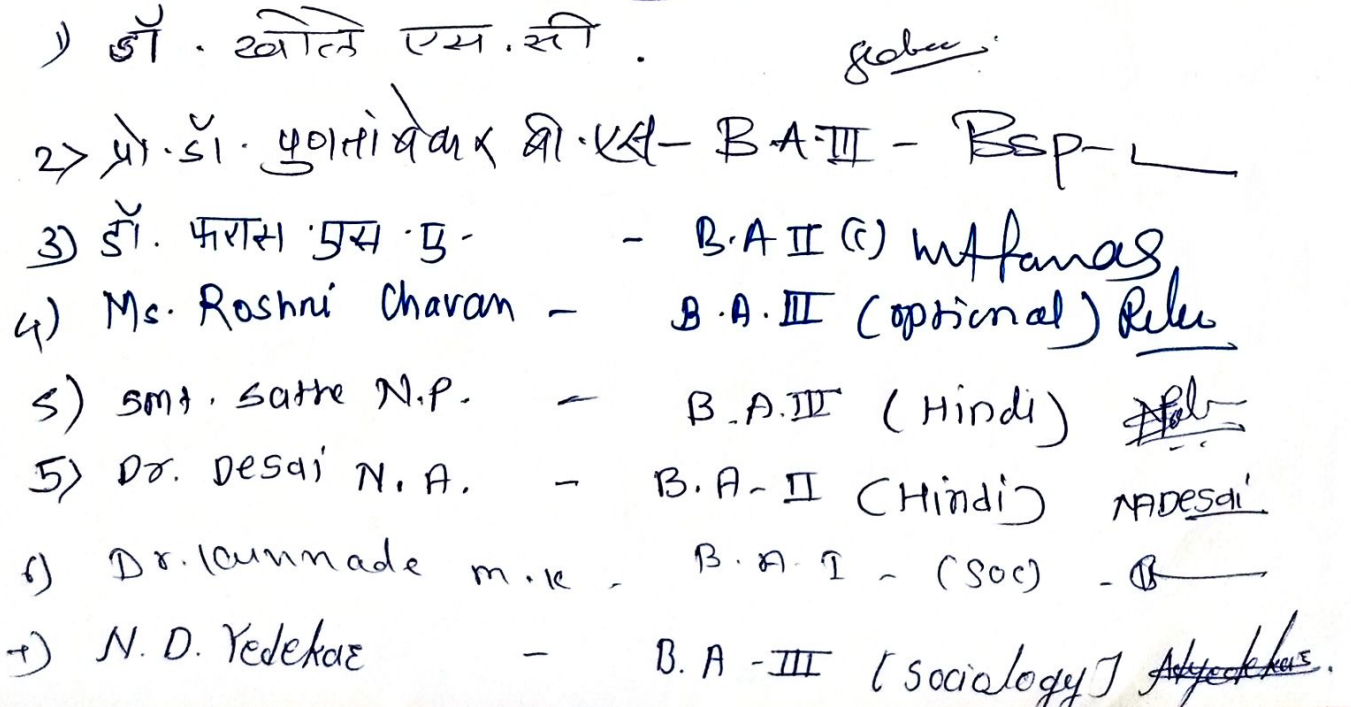 1) डॉ. खोले एस.सी.
2) प्रो.डॉ. पुणतांबेकर बी.एस - B.A-III - BSP
3) डॉ. फरास एस.ए. - B.A II (C)
4) Ms. Roshni Chavan - B.A.III (optional)
5) Smt. Sathe N.P. - B.A.III (Hindi)
5) Dr. Desai N.A. - B.A-II (Hindi) NADesai
6) Dr. Kunnade M.K - B.A.I - (Soc)
7) N.D. Yedekar - B.A-III (Sociology)